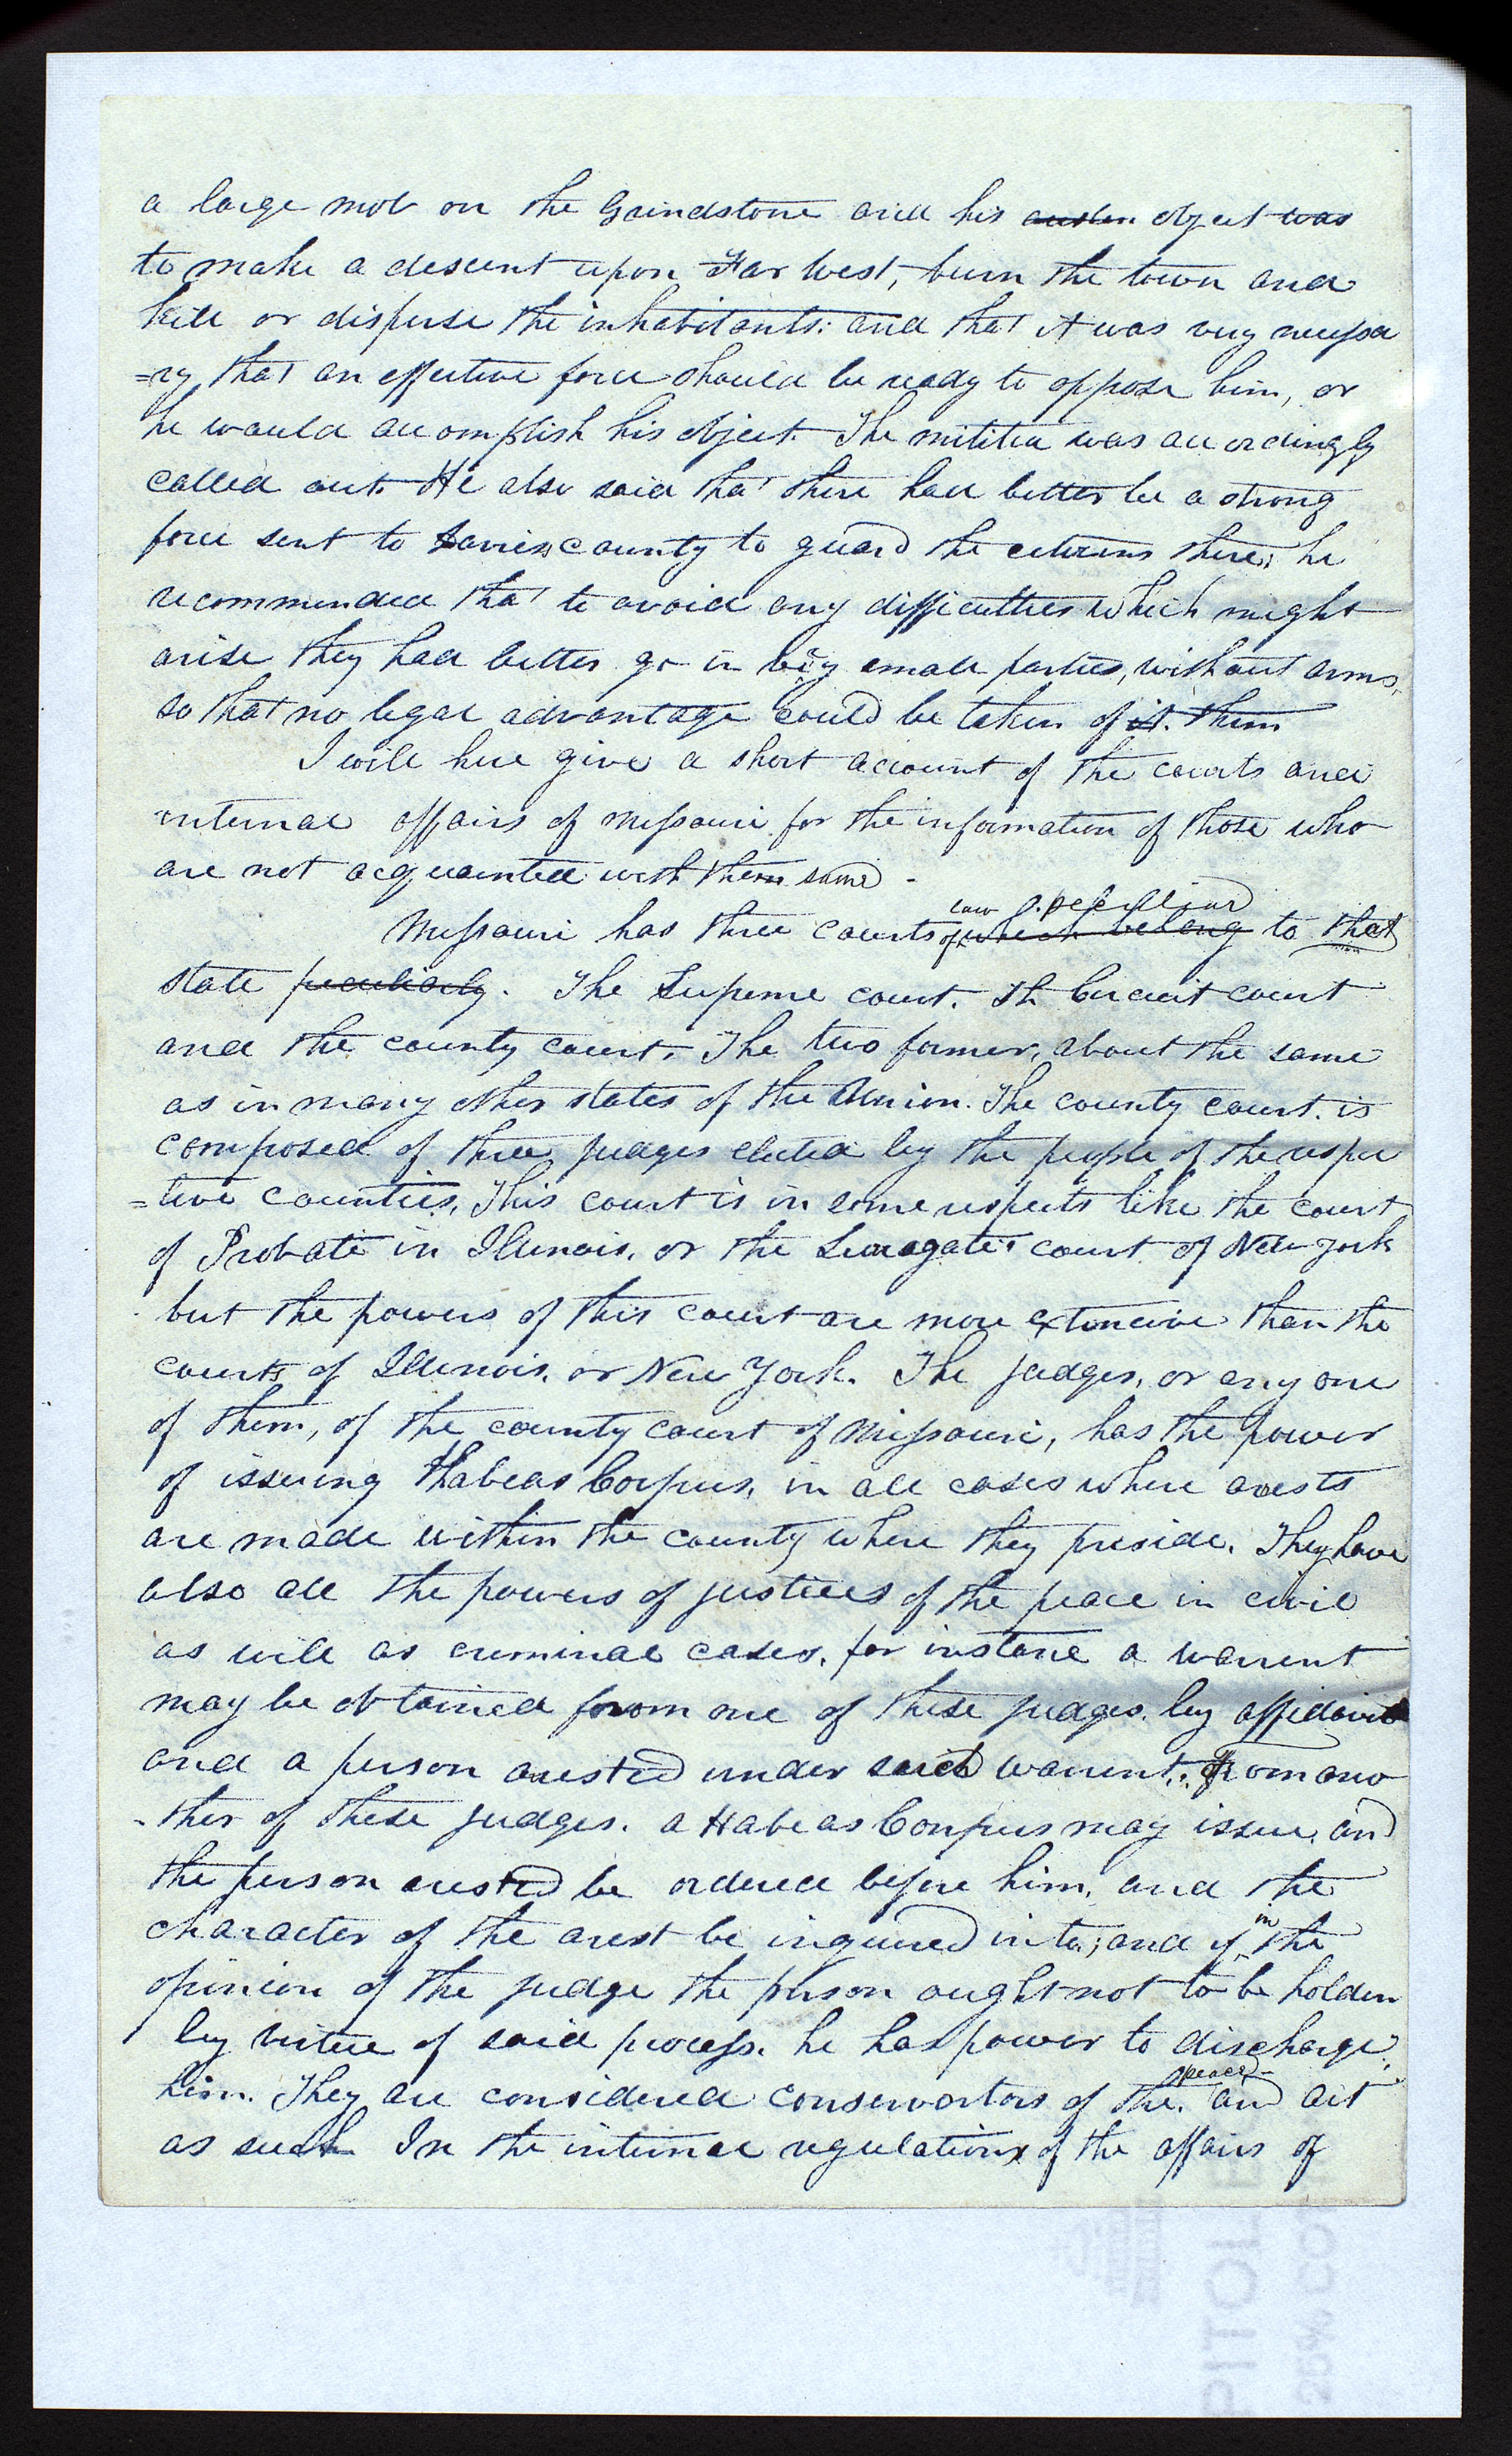 a large mob on the Grindstone and his object was
to make a descent upon Far West, burn the town and
kill or disperse the inhabitants: and that it was very necessa
=ry that an effective force should be ready to oppose him, or
he would accomplish his object. The militia was accordingly
called out. He also said that there had better be a strong
force sent to Davies county to guard the citizens there; he
recommended that to avoid any difficulties which might
arise they had better go in very small parties, without arms,
so that no legal advantage could be taken of it. them
I will here give a short account of the courts and
internal affairs of Missouri for the information of those who
are not acquainted with them same -
law peculiar
Missouri has three courts of which belong to that
state peculiarly. The Supreme court. Th Circuit court
and the county court. The two former, about the same
as in many other states of the Union. The county court. is
composed of three judges elected by the people of the respec
=tive counties. This court is in some respects like the court
of Probate in Illinois, or the Surrogate's court of New York
but the powers of this court are more extencive than the
courts of Illinois, or New York. The judges, or any one
of them, of the county court of Missouri, has the power
of issuing Habeas Corpus, in all cases where arests
are made within the county where they preside. They have
also all the powers of justices of the peace in civil
as well as criminal cases, for instance a warrent
may be obtained from one of these judges by affidavit
and a person arested under said warrent. From ano
-ther of these judges. a Habeas Corpus may issue, and
the person arested be ordered before him, and the
character of the arest be inquired into; and if in the
opinion of the judge the person ought not to be holden
by virtue of said process. he has power to discharge
him. They are considered conservartors of the peace and act
as such. In the internal regulations of the affairs of